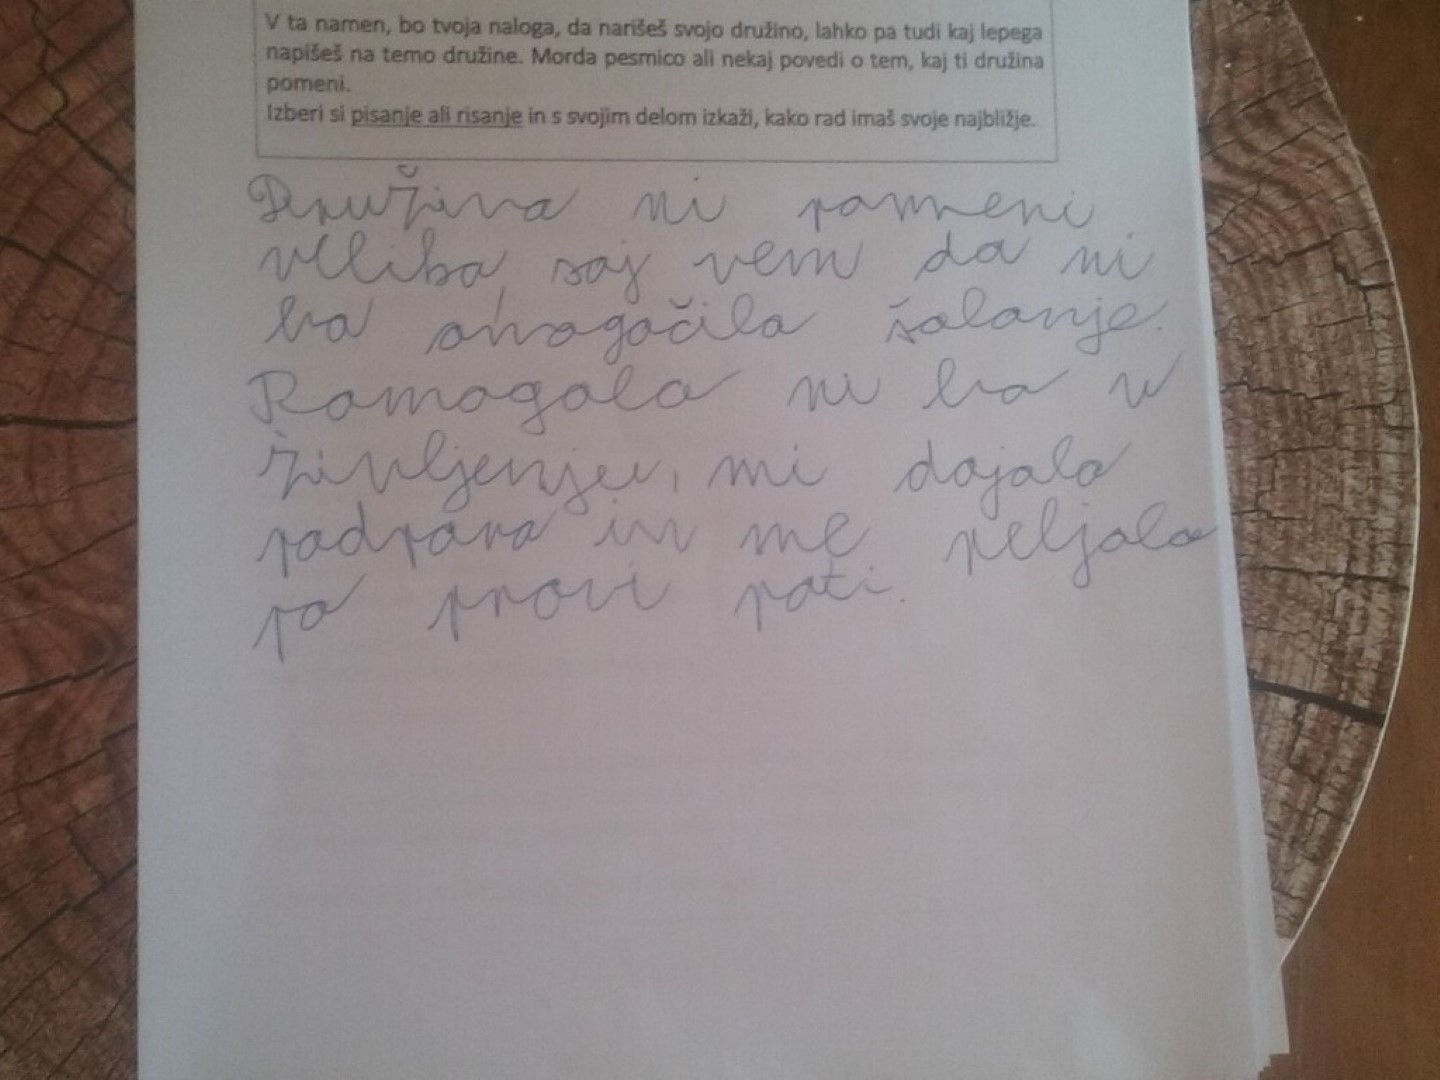 V ta namen, bo tvoja naloga, da narišeš svojo družino, lahko pa tudi kaj lepega
napišeš na temo družine. Morda pesmico ali nekaj povedi o tem, kaj ti družina
pomeni.
Izberi si pisanje ali risanje in s svojim delom izkaži, kako rad imaš svoje najbližje.
Družina mi pomeni
veliko, saj vem da mi
bo omogočila šolanje.
Pomagala mi bo v
življenju, mi dajala
podporo in me peljala
po pravi poti.